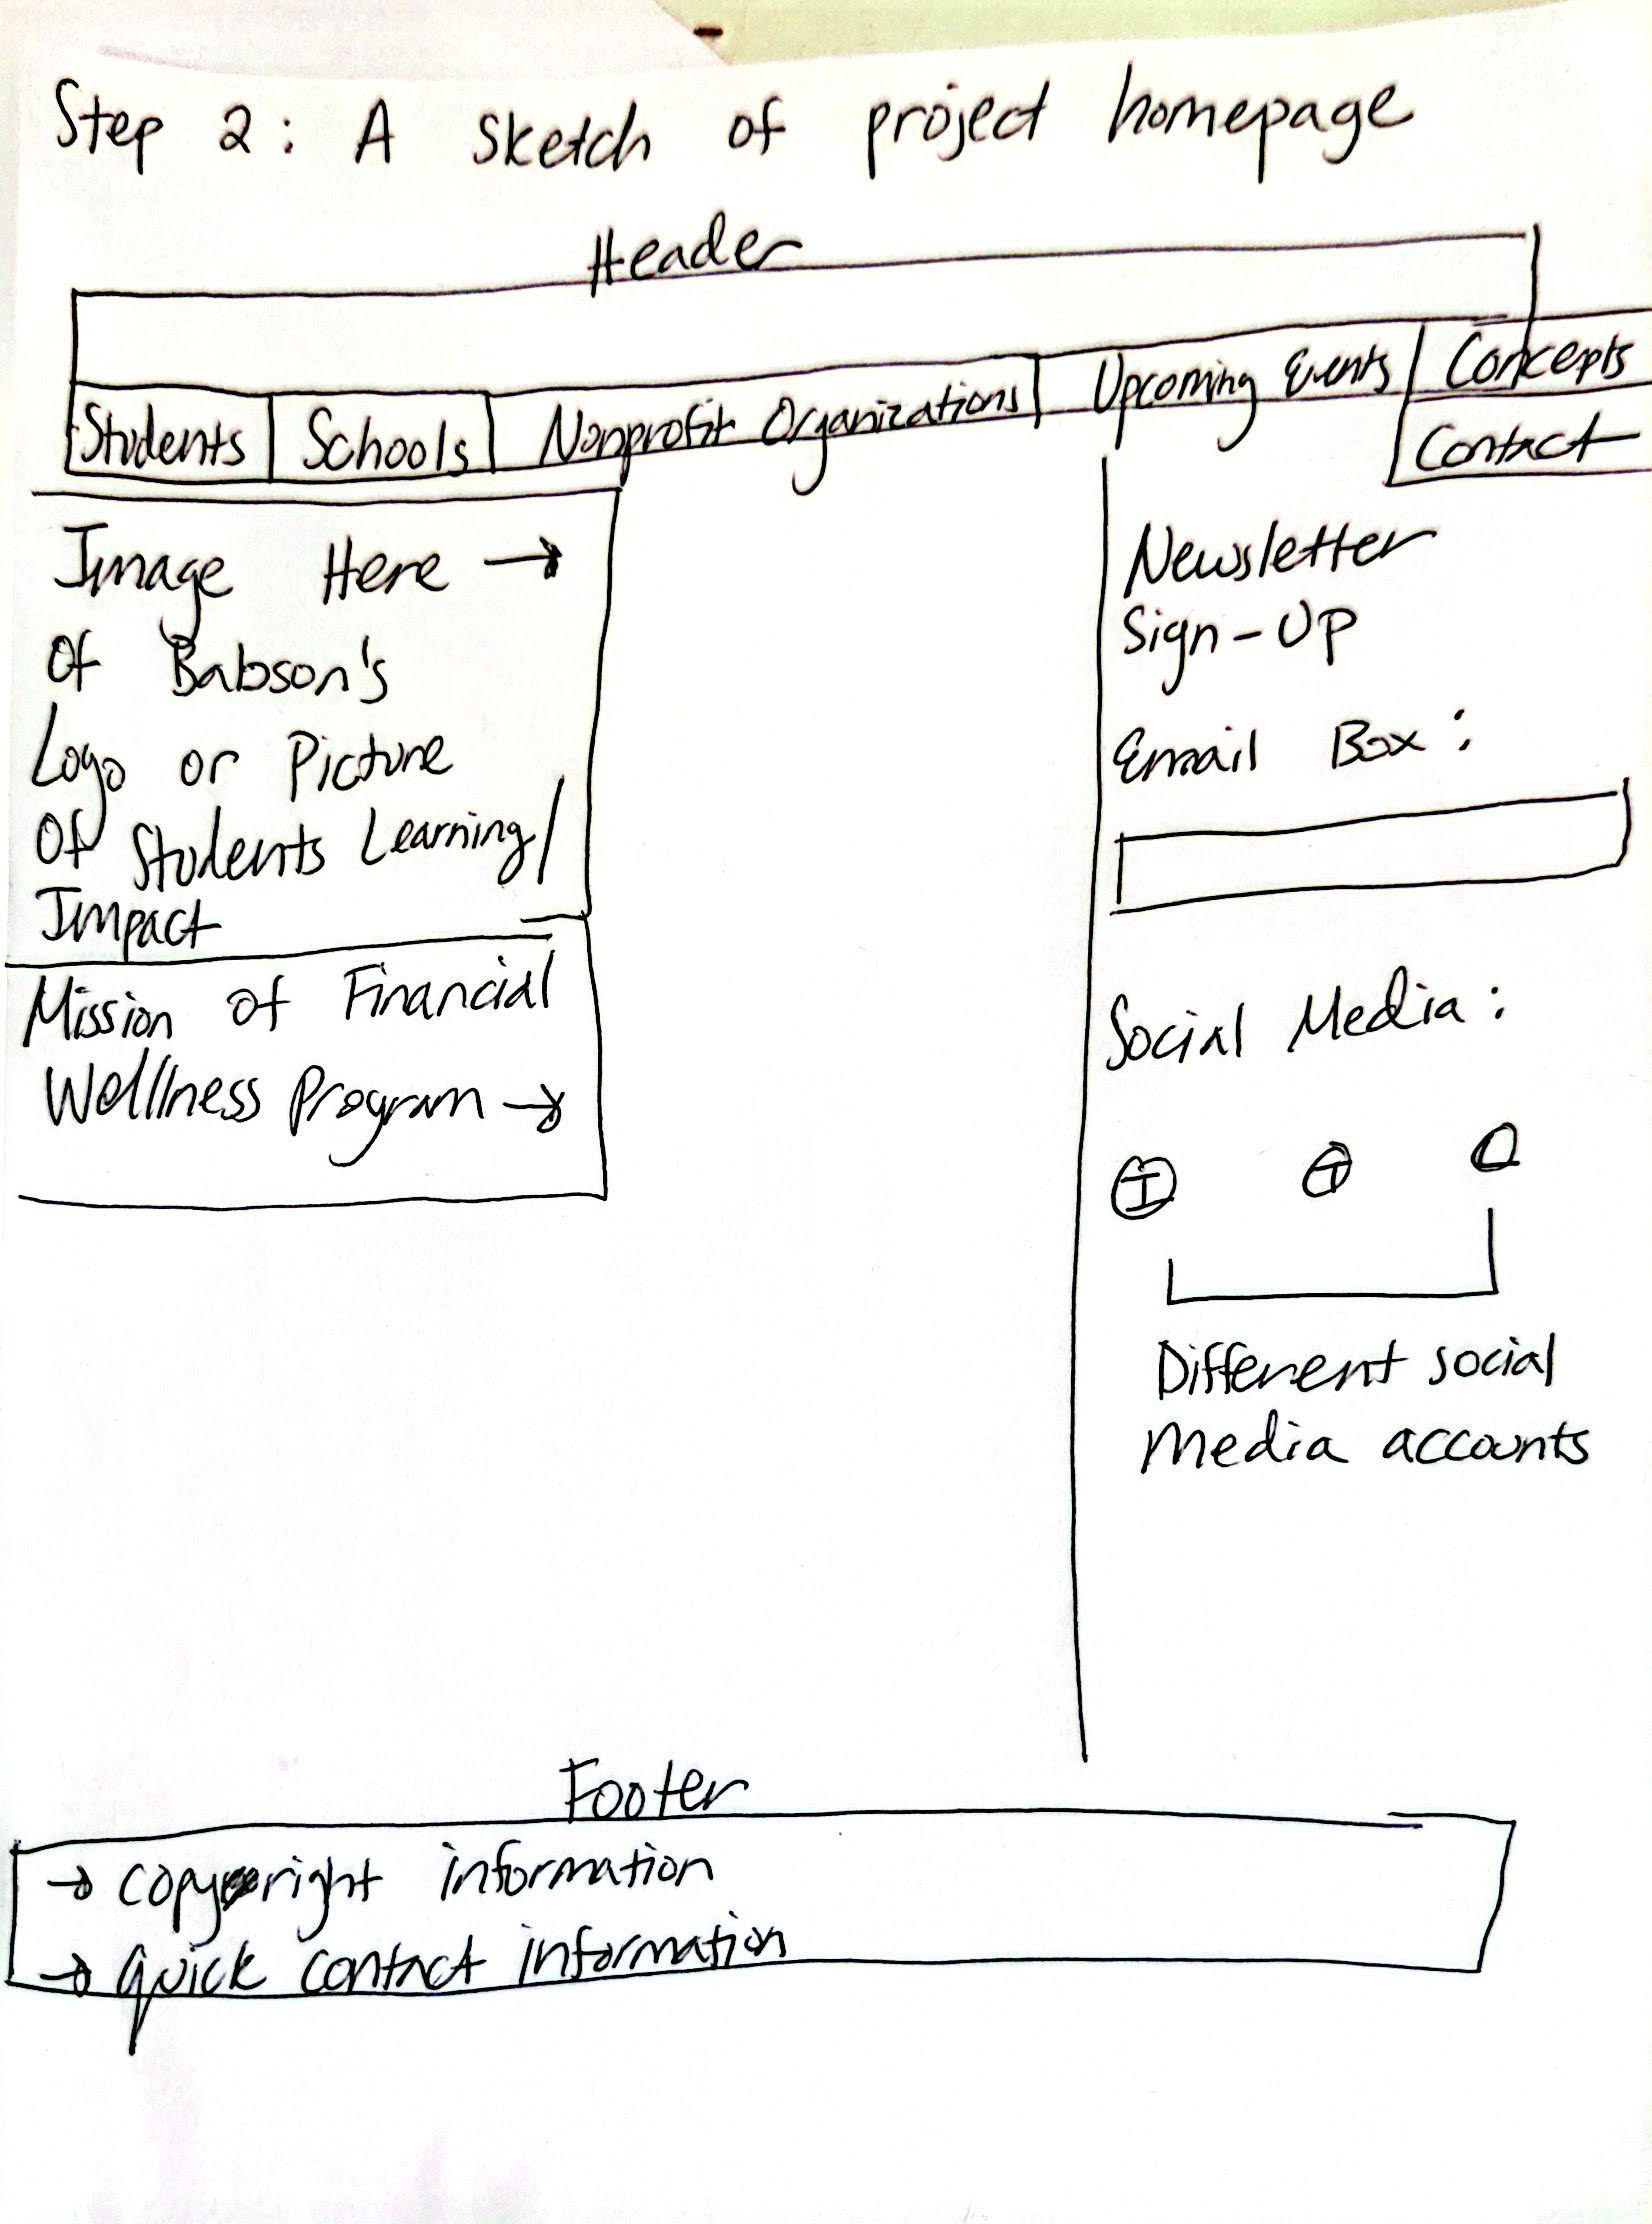 Step 2: A sketch of project homepage
Header
Students Schools Nonprofit Organizations Upcoming Events Concepts
Contact
Image Here →
Of Babson's
Logo or Picture
Of Students Learning/
Impact
Mission of Financial
Wellness Program →
Newsletter
Sign-Up
Email Box:
Social Media:
I T
Different social
Media accounts
Footer
→ copyright information
→ quick contact information